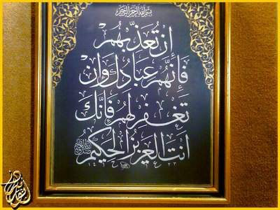 بسم الله الرحمن الرحيم
إن تعذبهم
فإنهم عبادك وإن
تغفر لهم فإنك
أنت العزيز الحكيم